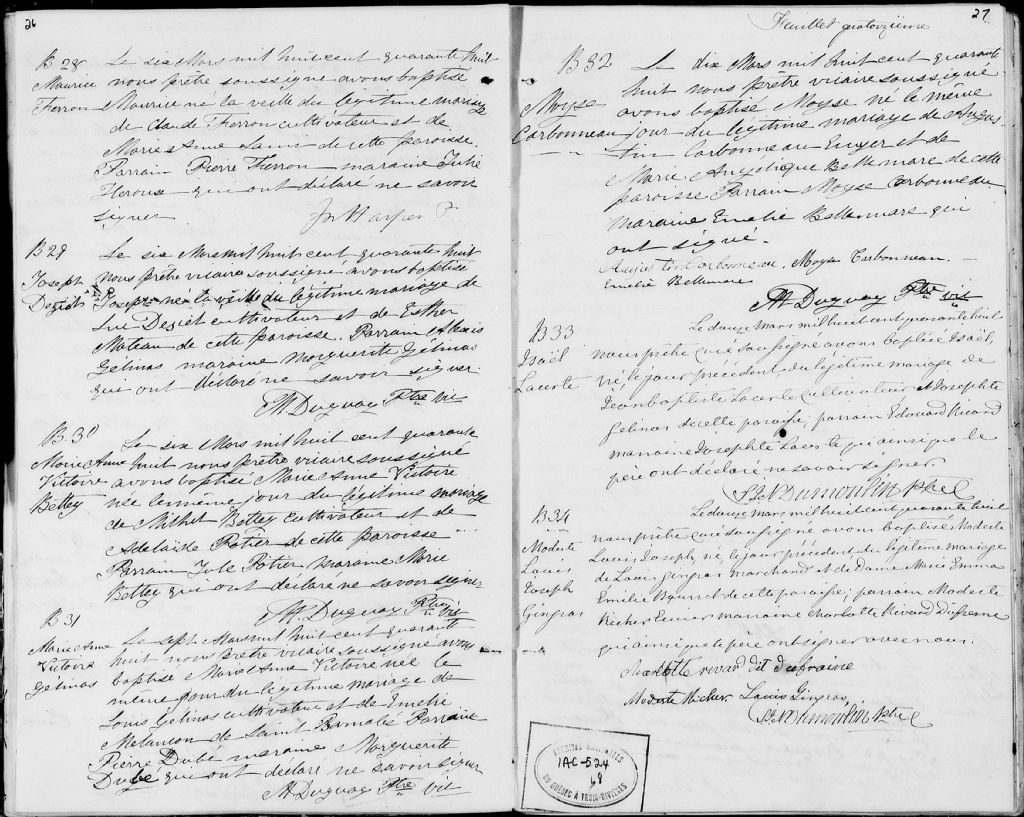 26
B 28
Maurice
Ferron
Le six Mars mil huit cent quarante huit
nous prêtre soussigné avons baptisé
Maurice né la veille du légitime mariage
de Claude Ferron cultivateur et de
Marie Anne Lami de cette paroisse.
Parrain Pierre Ferron maraine Julie
Heroux qui ont déclaré ne savoir
signer
Jn Harper P
B 29
Joseph
Deziel
Le six Mars mil huit cent quarante huit
nous prêtre vicaire soussigné avons baptisé
Joseph né la veille du légitime mariage de
Luc Deziel cultivateur et de Esther
Moteau de cette paroisse. Parrain Alexis
Gélinas maraine Marguerite Gélinas
qui ont déclaré ne savoir signer.
Duguay Ptre vic
B. 30
Marie Anne
Victoire
Bettey
Le six Mars mil huit cent quarante
huit nous prêtre vicaire soussigné
avons baptisé Marie Anne Victoire
née le même jour du légitime mariage
de Michel Bettey cultivateur et de
Adelaïde Potier de cette paroisse
Parrain Jule Potier maraine Marie
Bettey qui ont déclaré ne savoir signer
Duguay Ptre vic
B 31
Marie Anne
Victoire
Gélinas
Le sept Mars mil huit cent quarante
huit nous prêtre vicaire soussigné avons
baptisé Marie Anne Victoire née le
même jour du légitime mariage de
Louis Gélinas cultivateur et de Emelie
Melancon de Saint Barnabé Parrain
Pierre Dubé maraine Marguerite
Dubé qui ont déclaré ne savoir signer
Duguay Ptre vic
27
Feuillet quatorzième
B 32
Moyse
Carbonneau
Le dix Mars mil huit cent quarante
huit nous prêtre vicaire soussigné
avons baptisé Moyse né le même
jour du légitime mariage de Augus-
tin Carbonneau Ecuyer et de
Marie Angélique Bellemare de cette
paroisse Parrain Moyse Carbonneau
maraine Emelie Bellemare qui
ont signé.
Augustin Carbonneau. Moyse Carbonneau.
Emelie Bellemare
Duguay Ptre vic
B33
Isaël
Lacerte
Le douze Mars mil huit cent quarante huit
nous prêtre curé soussigné avons baptisé Isaël,
né le jour précédent, du légitime mariage de
Jean baptiste Lacerte cultivateur et Josephte
Gelinas de cette paroisse; parrain Edouard Ricard
maraine Josephte Lacerte qui ainsi que le
père ont déclaré ne savoir signer
Dumoulin Ptre
B34
Modeste
Louis
Joseph
Gingras
Le douze Mars mil huit cent quarante huit
nous prêtre curé soussigné avons baptisé Modeste
Louis Joseph, né le jour précédent du légitime mariage
de Louis Gingras marchand et de Dame Marie Emma
Emilie de cette paroisse; parrain Modeste
Richer Ecuier marraine Charlotte Rivard Dufresne
qui ainsi que le père ont signer avec nous.
Charlotte rivard dit dufraine
Modeste Richer Louis Gingras
Dumoulin Ptre
ARCHIVES NATIONALES
IAC-524
48
DU QUÉBEC À TROIS-RIVIÈRES